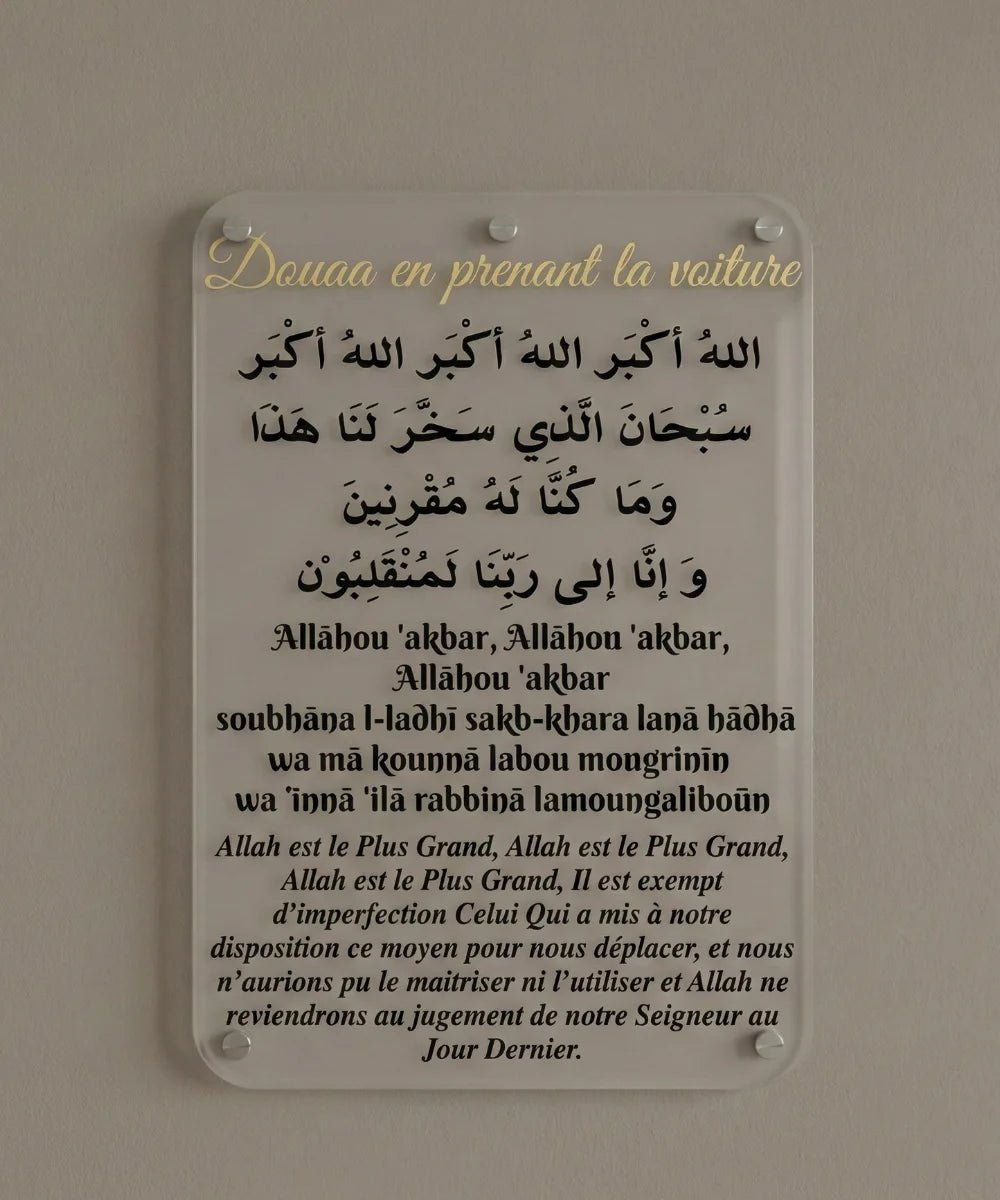 Douaa en prenant la voiture
اللهُ أكْبَر اللهُ أكْبَر اللهُ أكْبَر
سُبْحَانَ الَّذِي سَخَّرَ لَنَا هَذَا
وَمَا كُنَّا لَهُ مُقْرِنِينَ
وَ إنَّا إلى رَبِّنَا لَمُنْقَلِبُوْن
Allāhou 'akbar, Allāhou 'akbar,
Allāhou 'akbar
soubhāna l-ladhī sakh-khara lanā hādhā
wa mā kounnā lahou mouqrinīn
wa 'innā 'ilā rabbinā lamounqaliboūn
Allah est le Plus Grand, Allah est le Plus Grand,
Allah est le Plus Grand, Il est exempt
d’imperfection Celui Qui a mis à notre
disposition ce moyen pour nous déplacer, et nous
n’aurions pu le maitriser ni l’utiliser et Allah ne
reviendrons au jugement de notre Seigneur au
Jour Dernier.